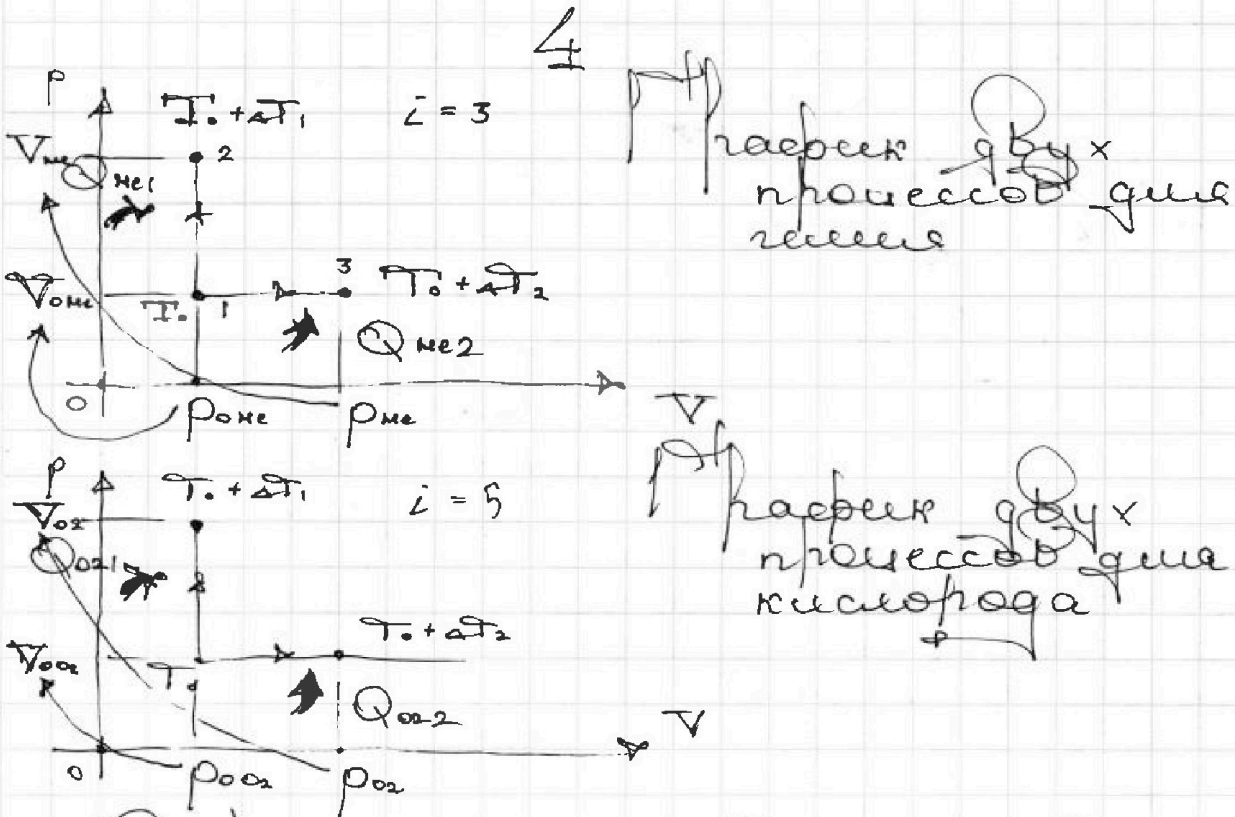 4
P
T₀ + ΔT₁ i = 3
V_He 2
Q_He1
3
V_0He T₀ 1 T₀ + ΔT₂
Q_He2
0 P_0He P_He V
График двух
процессов для
гелия
P
T₀ + ΔT₁ i = 5
V_O2
Q_O21
T₀ + ΔT₂
V_0O2 T₀
Q_O2-2
V
0 P_0O2 P_O2
График двух
процессов для
кислорода